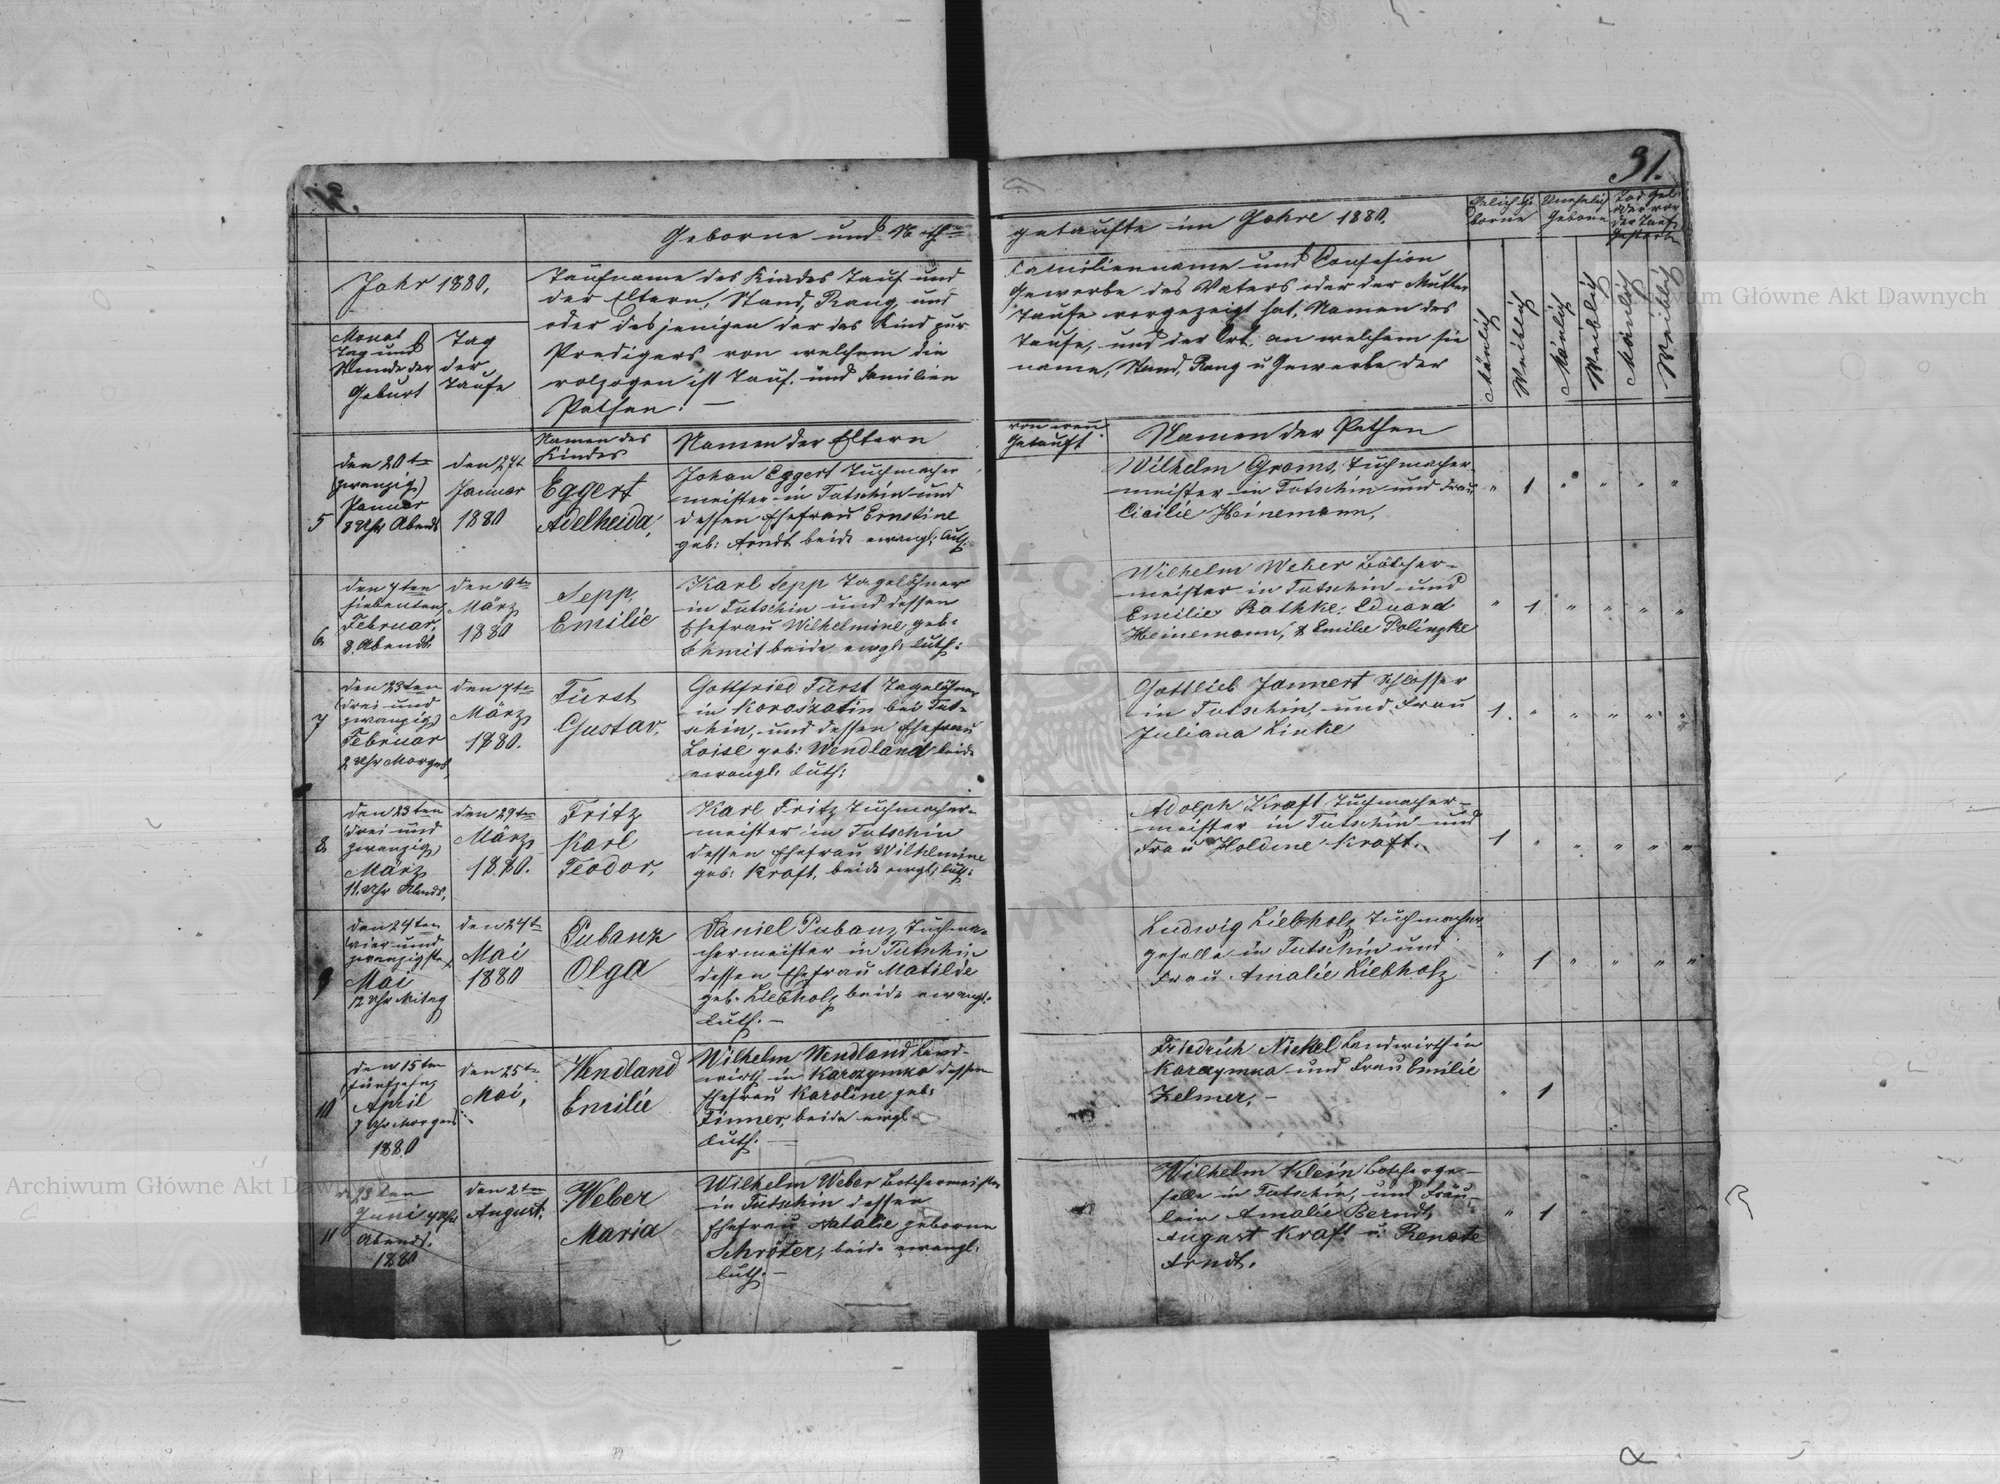 31.
Geborne und Noth=
getaufte im Jahre 1880.
Jahr 1880,
Monat
Tag und
Stunde der
Geburt
Tag
der
Taufe
Taufname des Kindes Tauf und
der Eltern, Stand, Rang, und
oder desjenigen der das Kind zur
Predigers von welchem die
volzogen ist Tauf. und Familien
Pathen. —
Familienname und Confession
Gewerbe des Vaters oder der Mutter
Taufe vorgezeigt hat. Namen des
Taufe, und der Ort. an welchem sie
name, Stand, Rang u Gewerbe der
Ehelich Ge
borne
Unehelich
Geborne
Tod Geb.
oder vor
der Taufe
Gestorbn
Mänlich
Weiblich
Mänlich
Weiblich
Mänlich
Weiblich
Namen des
Kindes
Namen der Eltern
von wem
Getauft
Namen der Pathen
5
den 20te
(zwanzig)
Januar
8 Uhr Abends
den 27t
Januar
1880
Eggert
Adelheida,
Johan Eggert Tuchmacher
meister in Tutschin und
dessen Ehefrau Ernstine
geb: Arndt beide evangl: luth:
Wilhelm Grams, Tuchmacher-
meister in Tutschin und Frau
Cicilie Heinemann,
" 1 " " " "
6
den 7ten
siebenten
Februar
8. Abends
den 6te
März
1880
Sepp,
Emilie
Karl Sepp Tagelöhner
in Tutschin und dessen
Ehefrau Wilhelmine geb:
Schmit beide evgl: luth:
Wilhelm Weber Bötcher-
meister in Tutschin und
Emilie Rathke; Eduard
Heinemann, & Emilie Polinzke
" 1 " " " "
7
den 23ten
(drei und
zwanzig)
Februar
2 Uhr Morgens,
den 7te
März
1880.
Fürst
Gustav,
Gottfried Fürst Tagelöhner
in Koroszatin bei Tut-
schin, und dessen Ehefrau
Loise geb: Wendland beide
evangl: luth:
Gottlieb Jannert Schlosser
in Tutschin, und Frau
Juliana Linke
1. " " " " "
8
den 23ten
(drei und
zwanzig)
März
11. Uhr Abends,
den 29te
März
1880.
Fritz
Karl
Teodor,
Karl Fritz Tuchmacher-
meister in Tutschin
dessen Ehefrau Wilhelmine
geb: Kraft, beide evgl: luth:
Adolph Kraft Tuchmacher-
meister in Tutschin und
Frau Holdine Kraft.
1 " " " " "
9
den 24ten
(vier und
zwanzigste)
Mai
12 Uhr Mitag
den 24te
Mai
1880
Pubanz
Olga
Daniel Pubanz Tuchma-
chermeister in Tutschin
dessen Ehefrau Matilde
geb. Liebholz beide evangl:
luth. —
Ludwig Liebholz Tuchmacher
geselle in Tutschin und
Frau Amalie Liebholz
" 1 " " " "
10
den 15ten
(fünfzehn)
April
7 Uhr Morgens
1880
den 25te
Mai,
Wendland
Emilie
Wilhelm Wendland Land-
wirth in Karczymka dessen
Ehefrau Karoline geb:
Finner, beide evgl
luth. —
Friedrich Nickel Landwirth in
Karczymka und Frau Emilie
Zelmer, —
" 1
11
Juni
Abends.
1880
den 2te
August.
Weber
Maria
Wilhelm Weber Botchermeister
in Tutschin dessen
Ehefrau Natalie geborne
Schröter, beide evangl.
luth. —
Wilhelm Klein Botcherge-
selle in Tutschin, und Fräu-
lein Amalie Berndt,
August Kraft u. Renate
Arndt.
" 1 " " " "
Archiwum Główne Akt Dawnych
Archiwum Główne Akt Dawnych